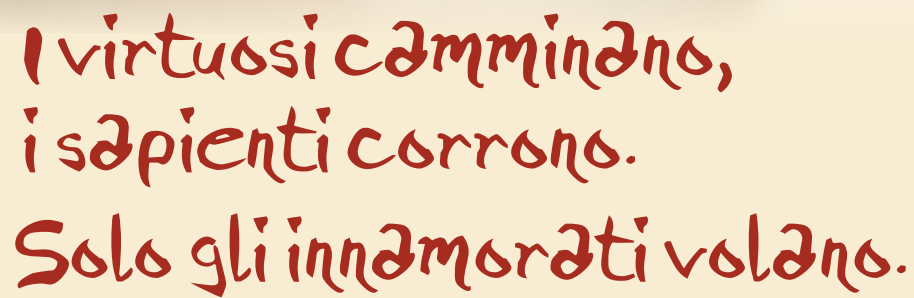 I virtuosi camminano,
i sapienti corrono.
Solo gli innamorati volano.